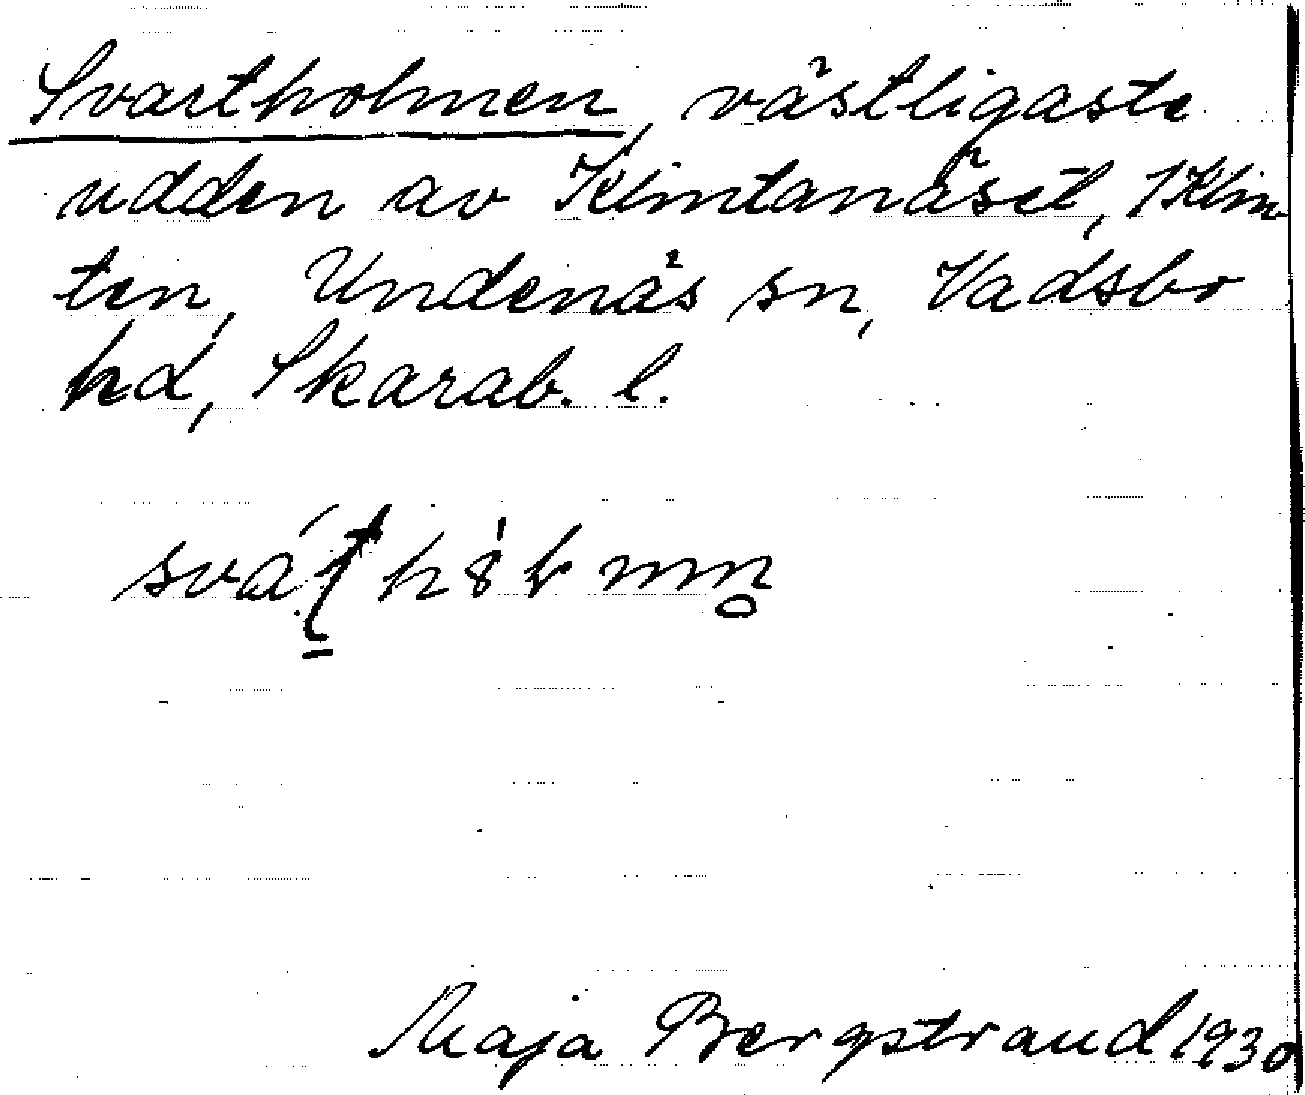 Svartholmen, västligaste
udden av Klintanäset, 1 Klin
ten, Undenäs sn, Vadsbo
hd, Skarab. l.
Maja Bergstrand 1930